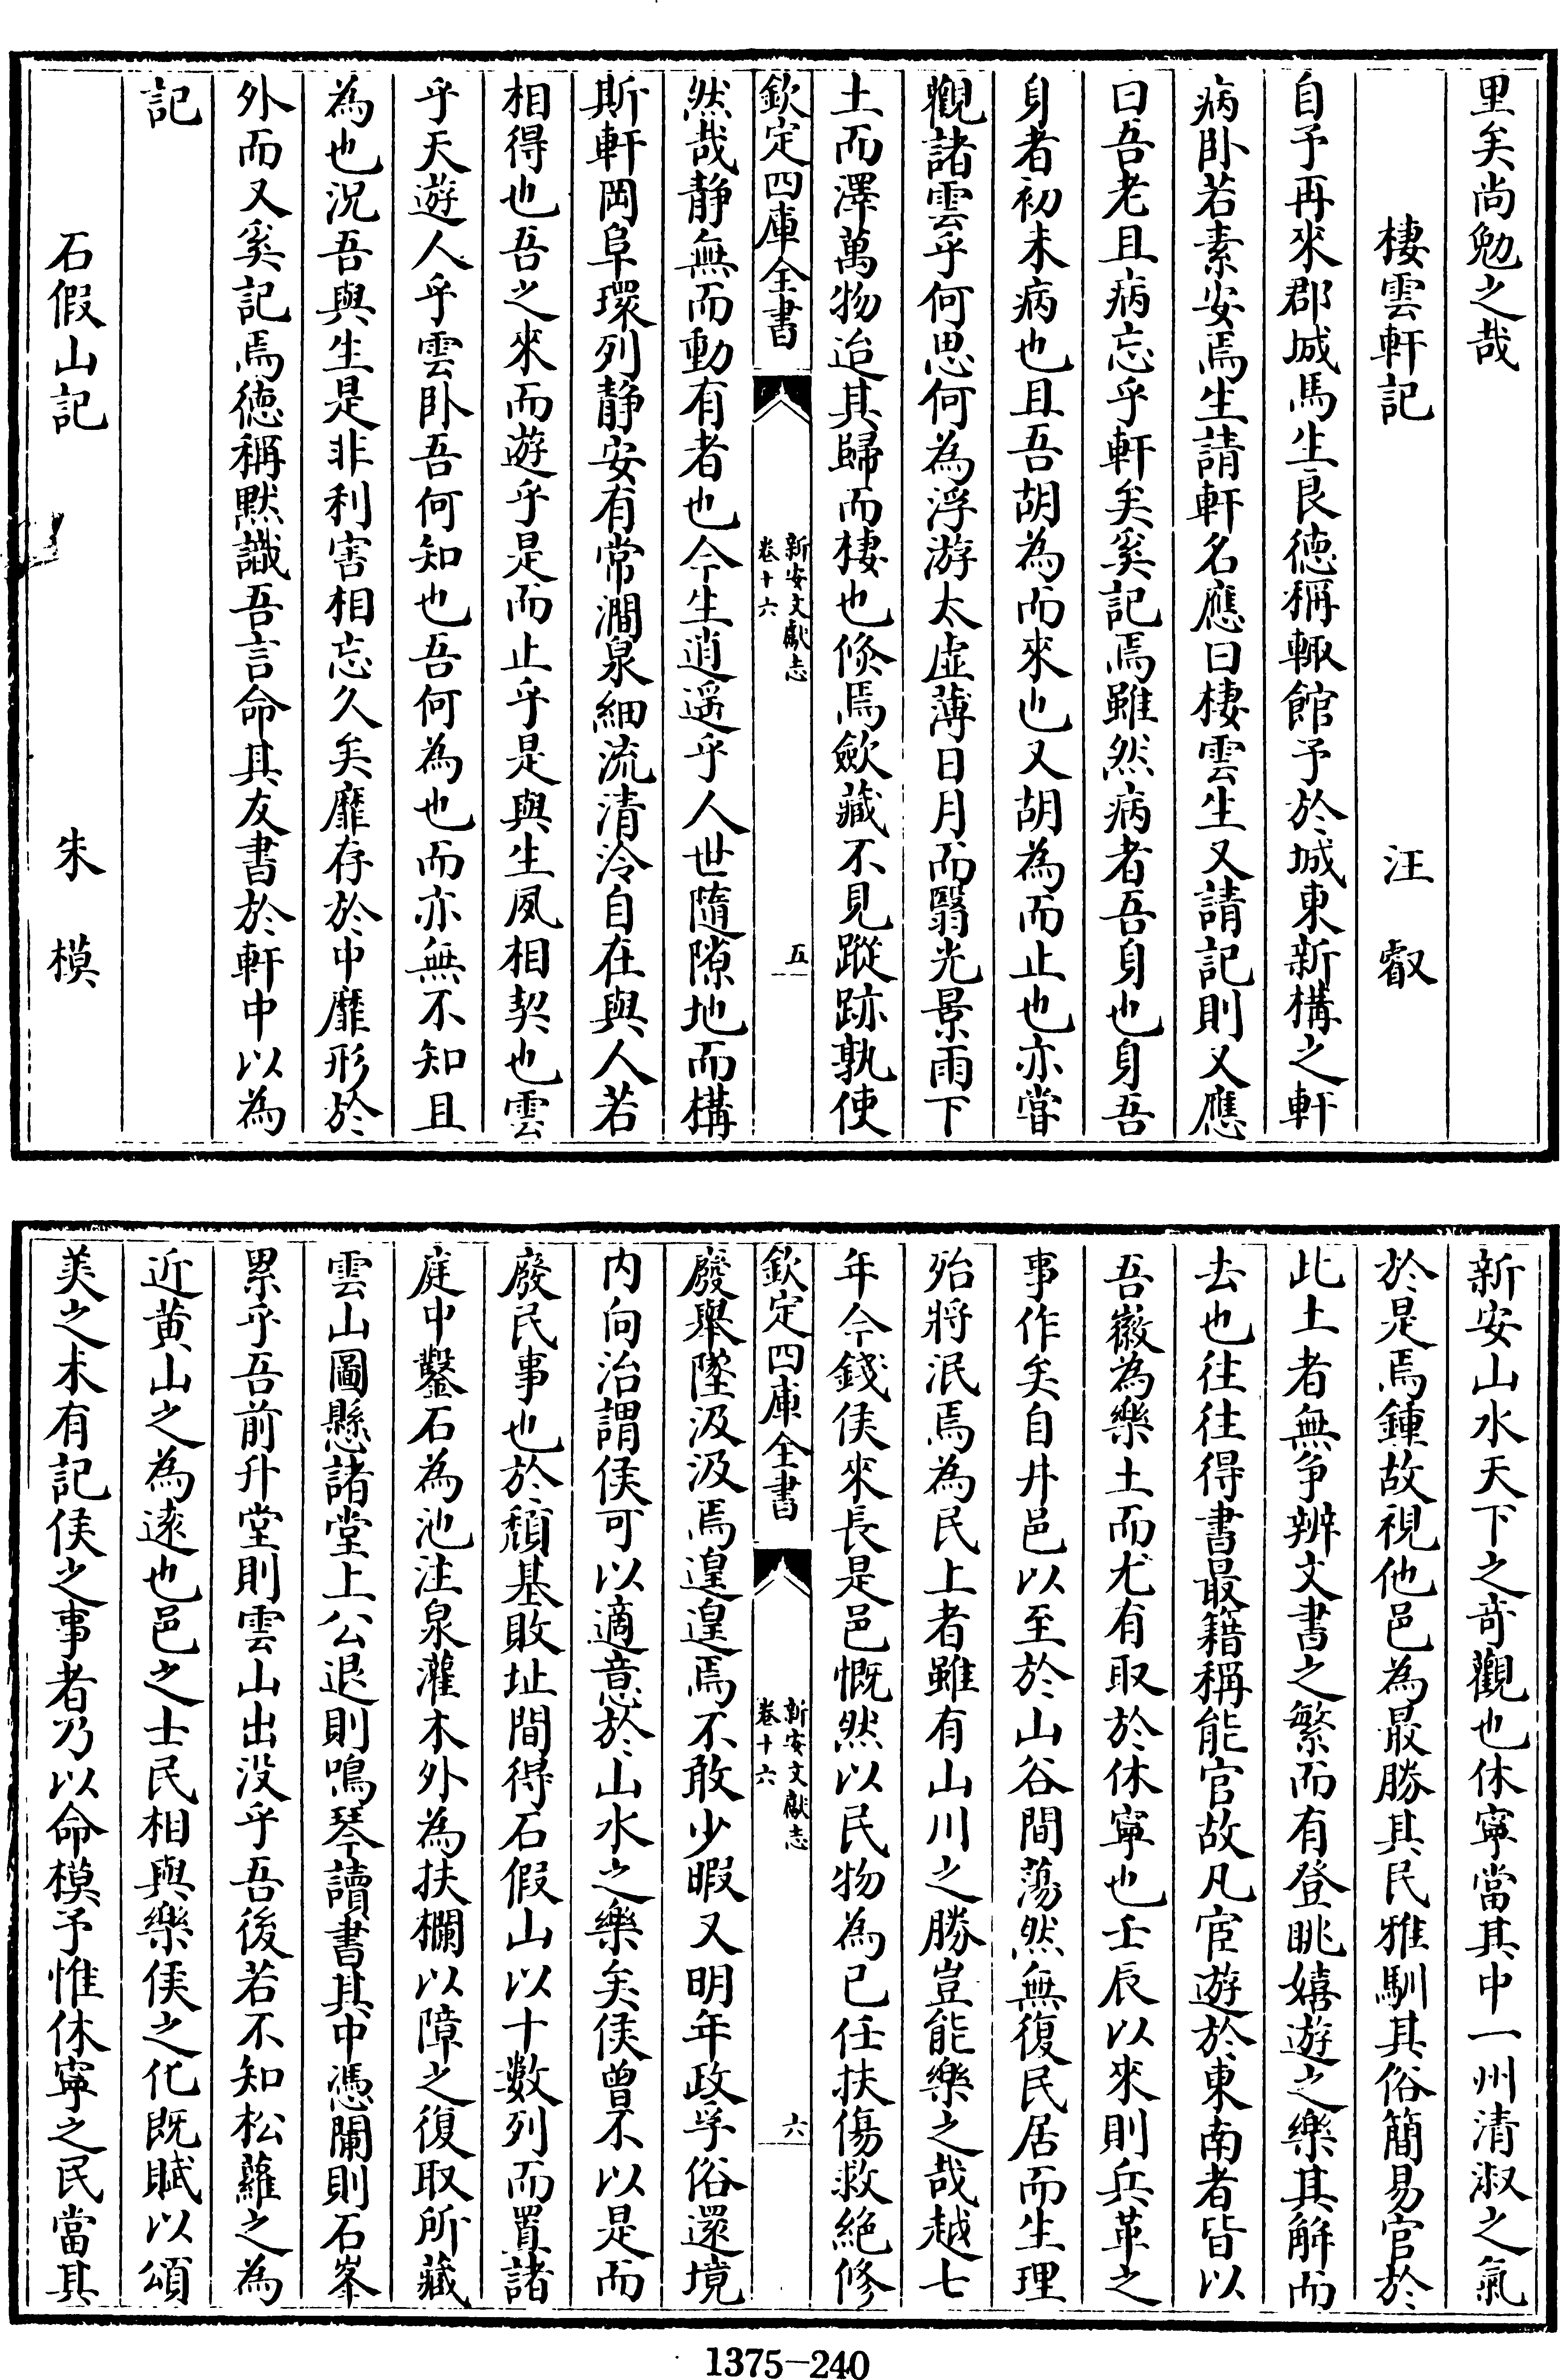 里矣尚勉之哉
棲雲軒記 汪叡
自予再來郡城馬生良德稱輙館予於城東新構之軒
病卧若素安焉生請軒名應曰棲雲生又請記則又應
曰吾老且病忘乎軒矣奚記焉雖然病者吾身也身吾
身者初未病也且吾胡為而來也又胡為而止也亦嘗
觀諸雲乎何思何為浮游太虛薄日月而翳光景雨下
土而澤萬物迨其歸而棲也倐焉歛藏不見蹤跡孰使
欽定四庫全書 新安文獻志 卷十六 五
然哉静無而動有者也今生逍遥乎人世隨隙地而構
斯軒岡阜環列静安有常澗泉細流清泠自在與人若
相得也吾之來而遊乎是而止乎是與生夙相契也雲
乎天遊人乎雲卧吾何知也吾何為也而亦無不知且
為也況吾與生是非利害相忘久矣靡存於中靡形於
外而又奚記焉德稱黙識吾言命其友書於軒中以為
記
石假山記 朱模
新安山水天下之奇觀也休寧當其中一州清淑之氣
於是焉鍾故視他邑為最勝其民雅馴其俗簡易官於
此土者無争辨文書之繁而有登眺嬉遊之樂其解而
去也往往得書最籍稱能官故凡宦遊於東南者皆以
吾徽為樂土而尤有取於休寧也壬辰以來則兵革之
事作矣自井邑以至於山谷間蕩然無復民居而生理
殆將泯焉為民上者雖有山川之勝豈能樂之哉越七
年今錢侯來長是邑慨然以民物為已任扶傷救絶修
欽定四庫全書 新安文獻志 卷十六 六
廢舉墜汲汲焉遑遑焉不敢少暇又明年政孚俗還境
内向治謂侯可以適意於山水之樂矣侯曾不以是而
廢民事也於頹基敗址間得石假山以十數列而置諸
庭中鑿石為池注泉灌木外為扶欄以障之復取所藏
雲山圖懸諸堂上公退則鳴琴讀書其中憑闌則石峯
累乎吾前升堂則雲山出没乎吾後若不知松蘿之為
近黄山之為遠也邑之士民相與樂侯之化既賦以頌
美之未有記侯之事者乃以命模予惟休寧之民當其
1375-240